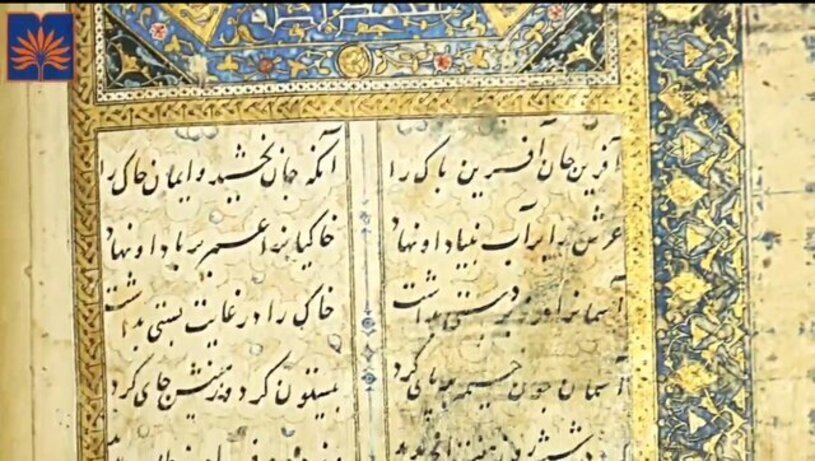 آفرین جان آفرین باک را آنکه جان بخشید و ایمان خاک را
عرش را بر آب بنیاد او نهاد خاکیانرا عمر بر باد او نهاد
آسمانرا در زبردستی بداشت خاک را در غایت بستی بداشت
آسمان جون خیمه بربای کرد بیستون کرد و زمینش جای کرد